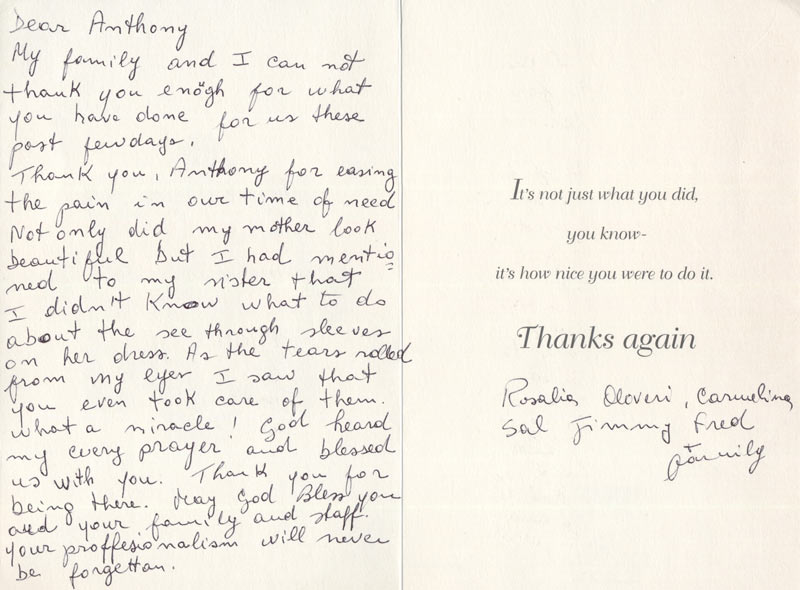 Dear Anthony
My family and I can not
thank you enough for what
you have done for us these
past fewdays.
Thank you, Anthony for easing
the pain in our time of need
Not only did my mother look
beautiful but I had mentio
ned to my sister that
I didn't know what to do
about the see through sleeves
on her dress. As the tears rolled
from my eyes I saw that
you even took care of them.
what a miracle! God heard
my every prayer and blessed
us with you. Thank you for
being there. May God Bless you
and your family and staff.
your proffesionalism will never
be forgettan.
It's not just what you did,
you know-
it's how nice you were to do it.
Thanks again
Rosalia Oloveri, Carmelina
Sal Jimmy Fred
Family